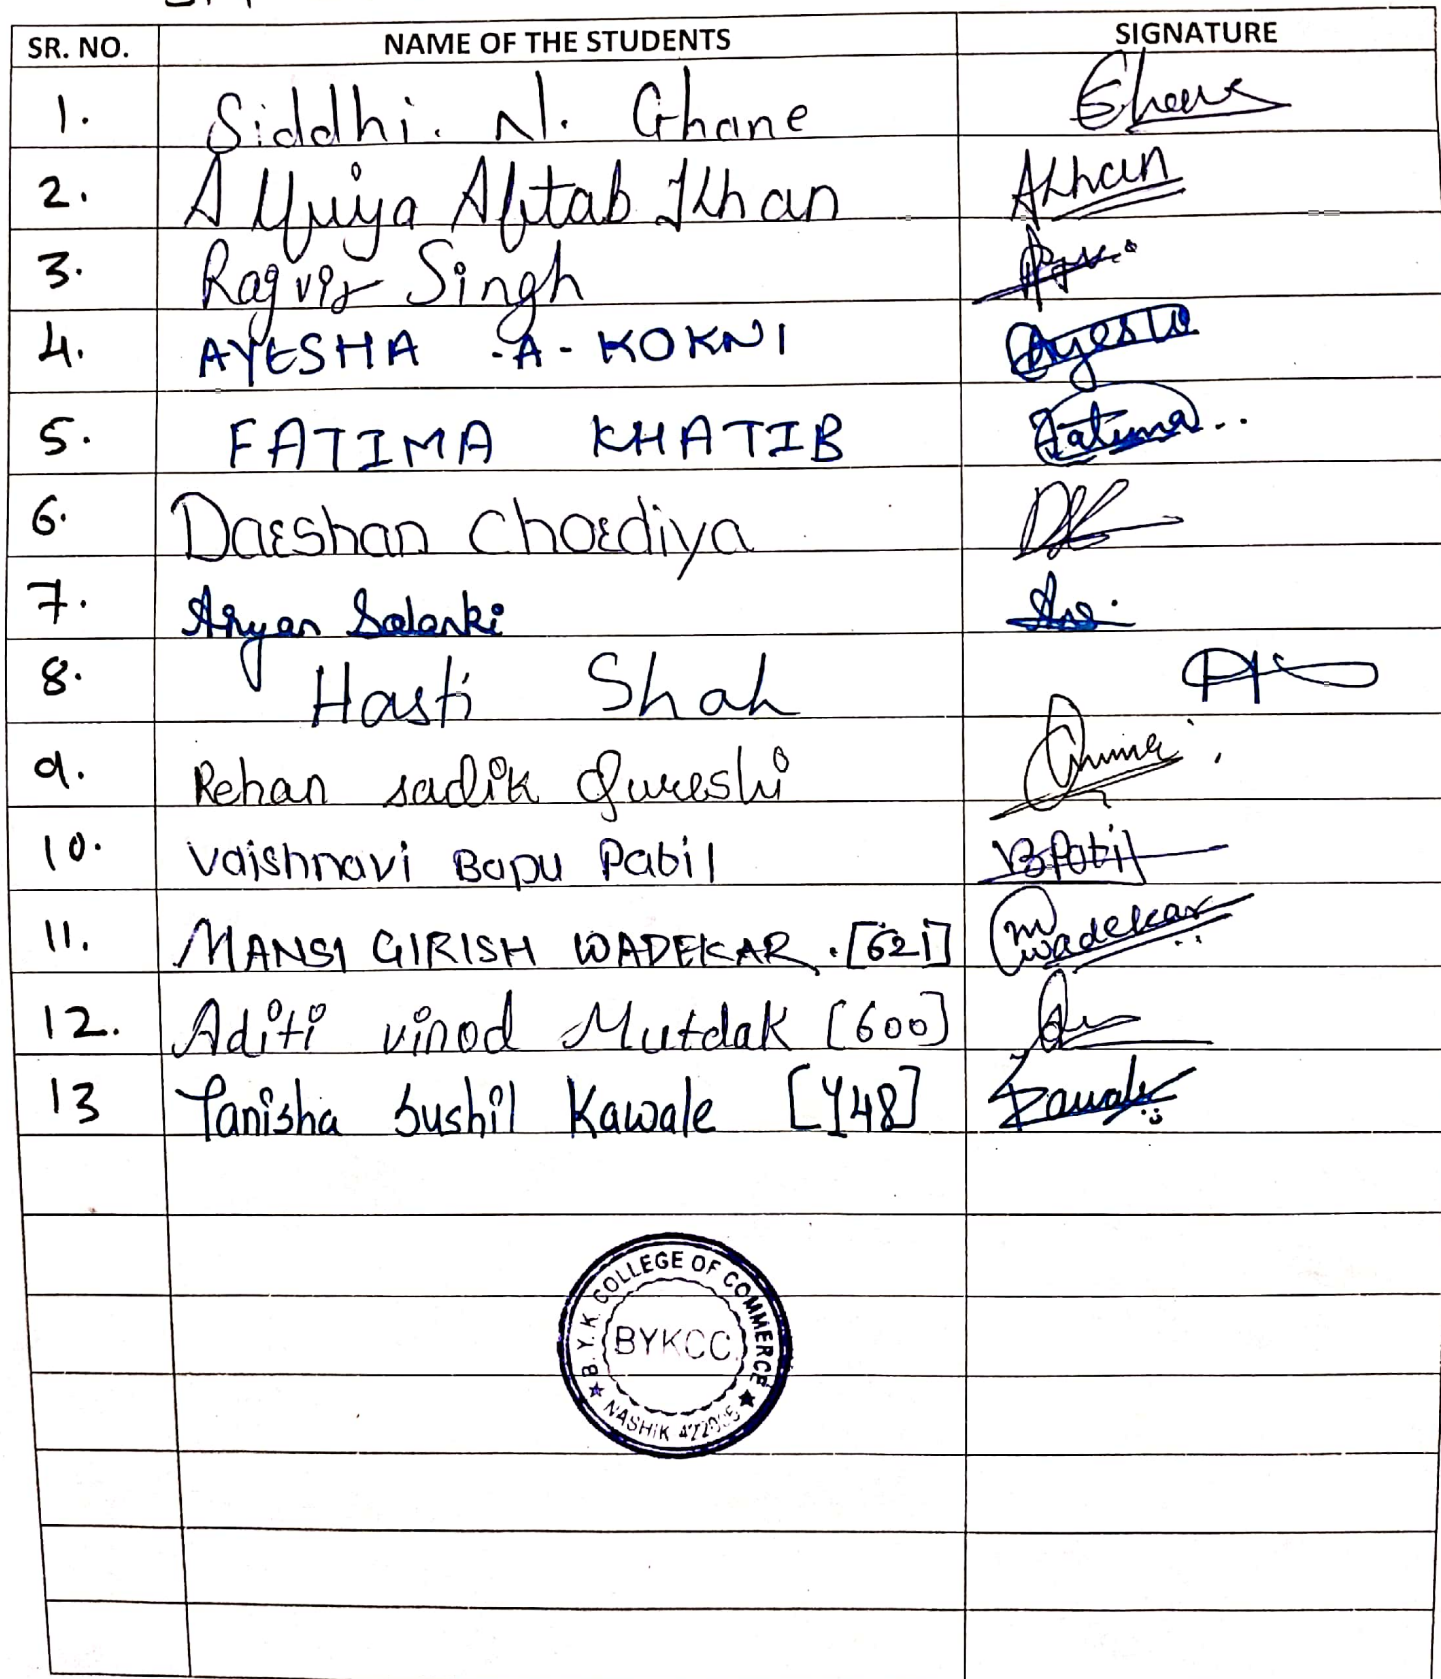 SR. NO. NAME OF THE STUDENTS SIGNATURE
1. Siddhi. N. Ghane
2. Aftab Khan AKhan
3. Singh
4. AYESHA .A. KOKNI Ayesha
5. FATIMA KHATIB Fatima..
6. Darshan Chordiya
7. Aryan Solanki
8. Hasti Shah
9. Rehan sadik Qureshi
10. Vaishnavi Bapu Patil VBPatil
11. MANSI GIRISH WADEKAR. [621] mwadekar
12. Aditi vinod Mutdak [600]
13 Tanisha Sushil Kawale [448] Kawale
B. Y. K. COLLEGE OF COMMERCE
BYKCC
NASHIK